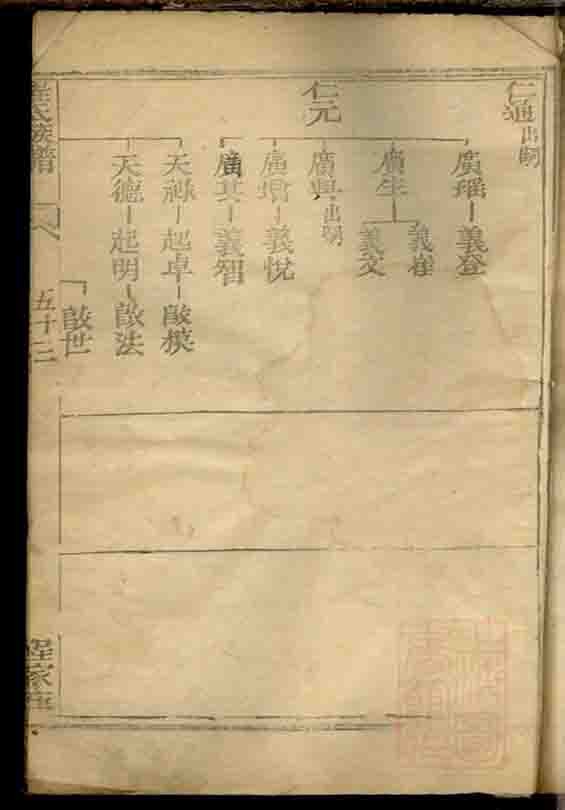 仁通出嗣
仁元
廣瑤 義登
廣生 義崔 義文
廣興出嗣
廣增 義悅
廣其 義智
天祿 起卓 啟模
天德 起明 啟法
啟世
氏族譜
五十三
程家